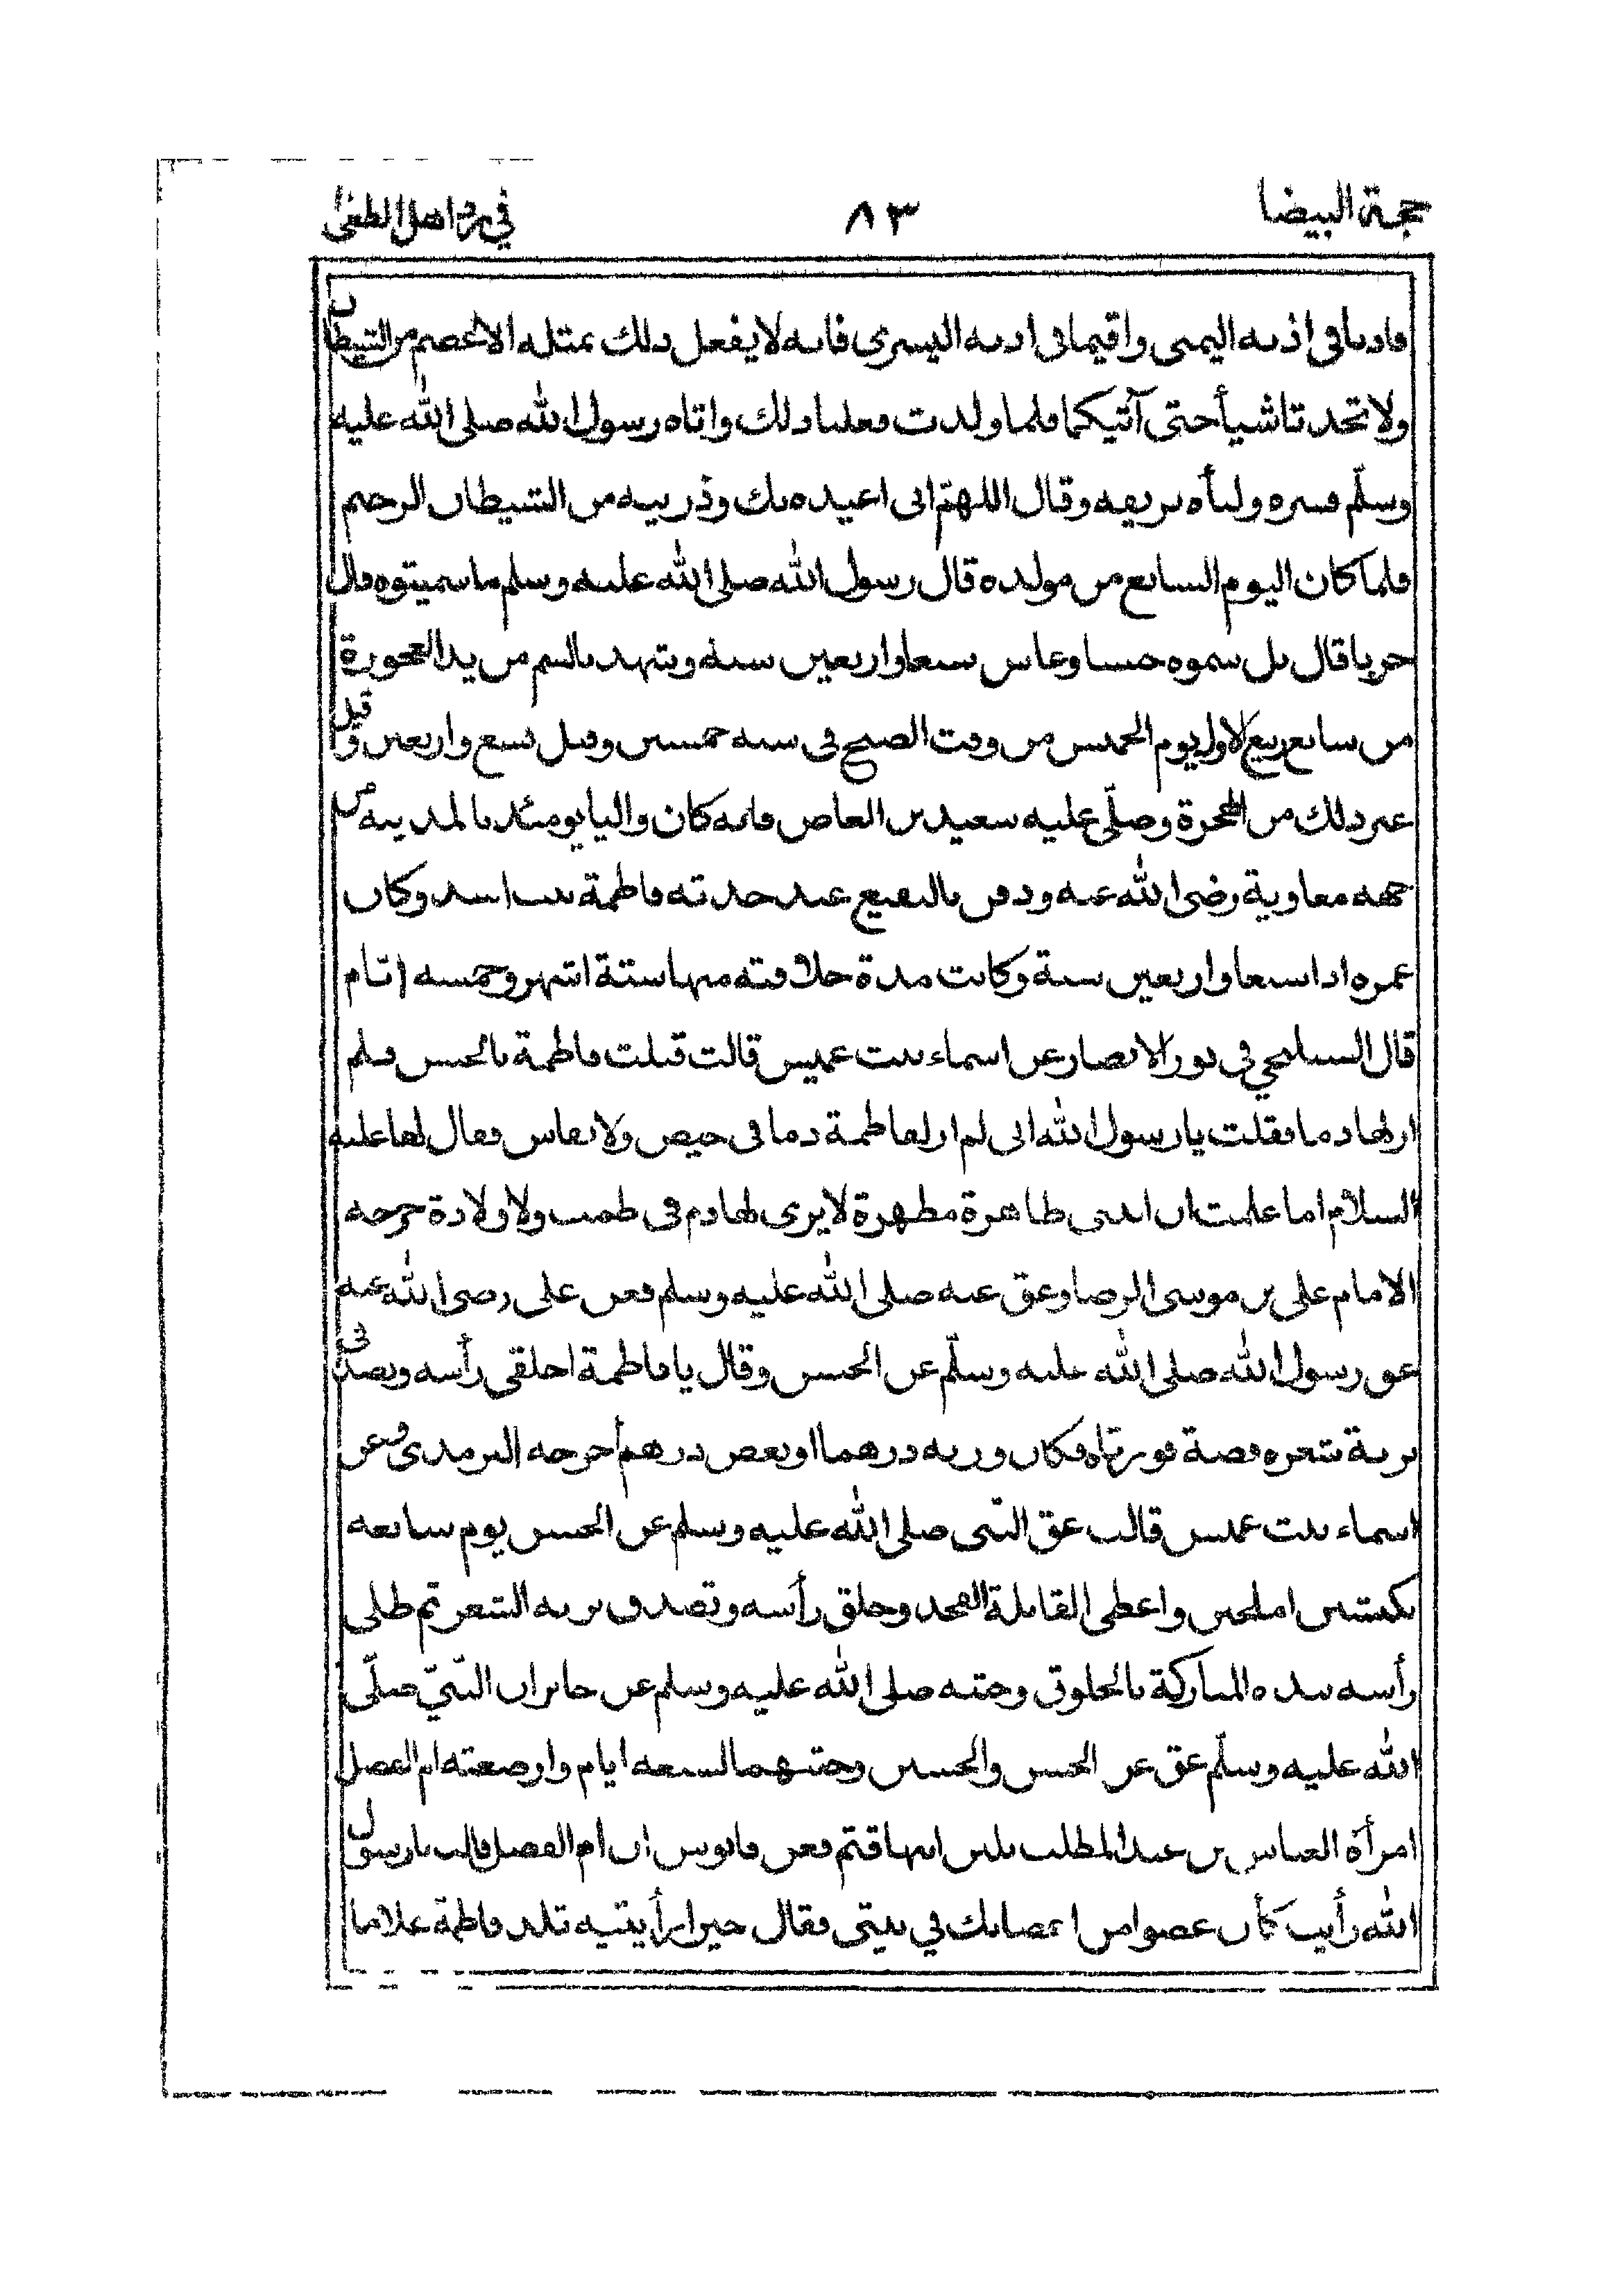 حجة البيضا ٨٣ في رد اهل الطغى
فاذنا في اذنه اليمنى واقيما في اذنه اليسرى فانه لا يفعل ذلك بمثله الا عصم من الشيطان
ولا تحدثا شيأ حتى آتيكما فلما ولدت فعلنا ذلك واتاه رسول الله صلى الله عليه
وسلّم فسره ولبأه بريقه وقال اللهم انى اعيذه بك وذريته من الشيطان الرجيم
فلما كان اليوم السابع من مولده قال رسول الله صلى الله عليه وسلم ما سميتوه قال
حربا قال بل سموه حسنا وعاش سبعا واربعين سنة وشهد بالسم من يد
من سابع ربيع الاول يوم الخميس من وقت الصبح فى سنه خمسين وقيل تسع واربعين وقيل
غير ذلك من الهجرة وصلّى عليه سعيد بن العاص فانه كان واليا يومئذ بالمدينة من
جهة معاوية رضى الله عنه ودفن بالبقيع عند جدته فاطمة بنت اسد وكان
عمره اذا سبعا واربعين سنة وكانت مدة خلافته منها ستة اشهر وخمسه ايام
قال فى نور الابصار عن اسماء بنت عميس قالت قبلت فاطمة بالحسن فلم
ار لها دما فقلت يا رسول الله انى لم ار لفاطمة دما فى حيض ولا نفاس فقال لها عليه
السلام اما علمت ان ابنتى طاهرة مطهرة لا يرى لها دم فى طمث ولا ولادة خرجه
الامام على بن موسى الرضا وعق عنه صلى الله عليه وسلم فعن على رضى الله عنه
عق رسول الله صلى الله عليه وسلّم عن الحسن وقال يا فاطمة احلقى رأسه وتصدقى
بزنة شعره فضة فوزناه فكان وزنه درهما او بعض درهم أخرجه الترمذى وعن
اسماء بنت عميس قالت عق النّبى صلى الله عليه وسلم عن الحسن يوم سابعه
بكبشين املحين واعطى القابلة الفخذ وحلق رأسه وتصدق بزنة الشعر ثم طلى
رأسه بيده المباركة بالخلوق وختنه صلى الله عليه وسلم عن جابر ان النّبيّ صلّى
الله عليه وسلّم عق عن الحسن والحسين وختنهما لسبعه ايام وارضعته ام الفضل
امرأة العباس بن عبد المطلب بلبن ابنها قثم فعن قابوس ان أم الفضل قالت يا رسول
الله رأيت كأن عضوا من اعضائك في بيتى فقال خيرا رأيتيه تلد فاطمة غلاما